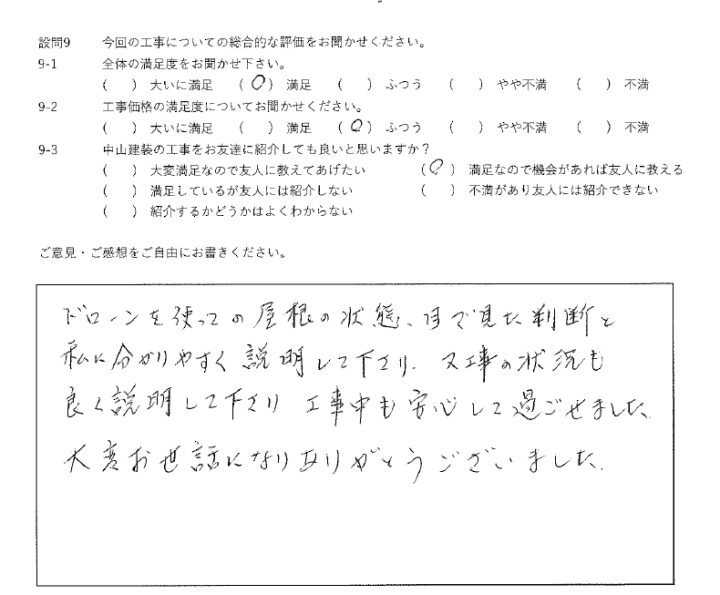 設問9 今回の工事についての総合的な評価をお聞かせください。
9-1 全体の満足度をお聞かせ下さい。
( ) 大いに満足 (○) 満足 ( ) ふつう ( ) やや不満 ( ) 不満
9-2 工事価格の満足度についてお聞かせください。
( ) 大いに満足 ( ) 満足 (○) ふつう ( ) やや不満 ( ) 不満
9-3 中山建装の工事をお友達に紹介しても良いと思いますか？
( ) 大変満足なので友人に教えてあげたい (○) 満足なので機会があれば友人に教える
( ) 満足しているが友人には紹介しない ( ) 不満があり友人には紹介できない
( ) 紹介するかどうかはよくわからない
ご意見・ご感想をご自由にお書きください。
ドローンを使っての屋根の状態、目で見た判断と
私に分かりやすく説明して下さり、又工事の状況も
良く説明して下さり 工事中も安心して過ごせました。
大変お世話になりありがとうございました。